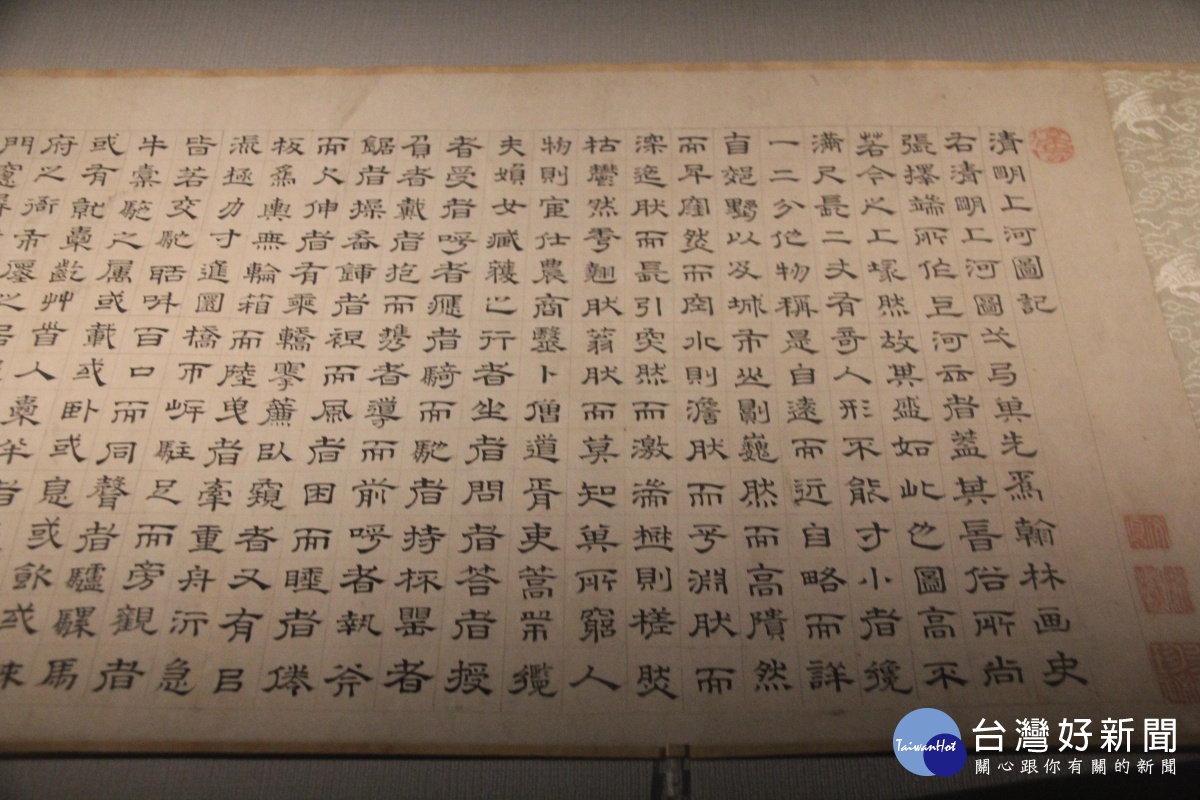 清明上河圖記
右清明上河圖弌弓其先為翰林画史
張擇端所作巨河云者蓋其旹俗所尚
若今之上塚然故其盛如此也圖高不
滿尺長二丈有奇人形不能寸小者纔
一二分他物稱是自遠而近自略而詳
自郊野以及城市山則巍然而高隤然
而卑窪然而空水則澹肰而平淵肰而
深迤肰而長引突然而激湍樹則槎然
枯鬱然秀翹肰蓊肰而莫知其所窮人
物則宦仕農商醫卜僧道胥吏篙師纜
夫媍女臧獲之行者坐者問者答者授
者受者呼者應者騎而馳者持杯罍者
負者戴者抱而攜者導而前呼者執斧
鋸者操畚鍤者袒而風者困而睡者倦
而欠伸者有乘轎搴簾臥窺者又有㠯
板為輿無輪箱而陸曳者牽重舟泝急
流極力寸進圜橋帀岸駐足而旁觀者
皆若交聒叫百口而同聲者驢騾馬
牛橐駝之屬或載或臥或息或飲或秣
或有就橐齕艸首入橐半者
府之衙市廛之居
台灣好新聞
TaiwanHot
關心跟你有關的新聞